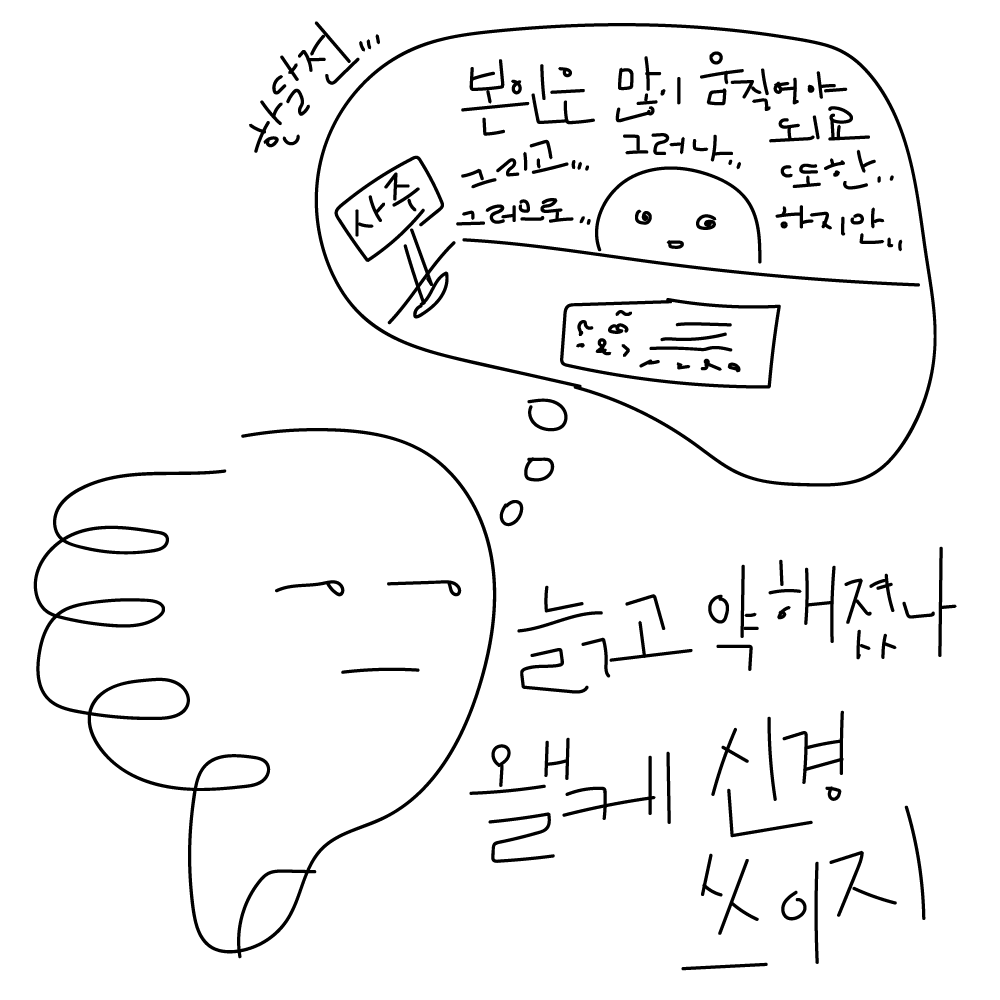 한달전...
본인은 많이 움직여야
되요
그리고... 그러나.. 또한..
그러므로.. 하지만..
사주
늙고 약해졌나
왤케 신경
쓰이지